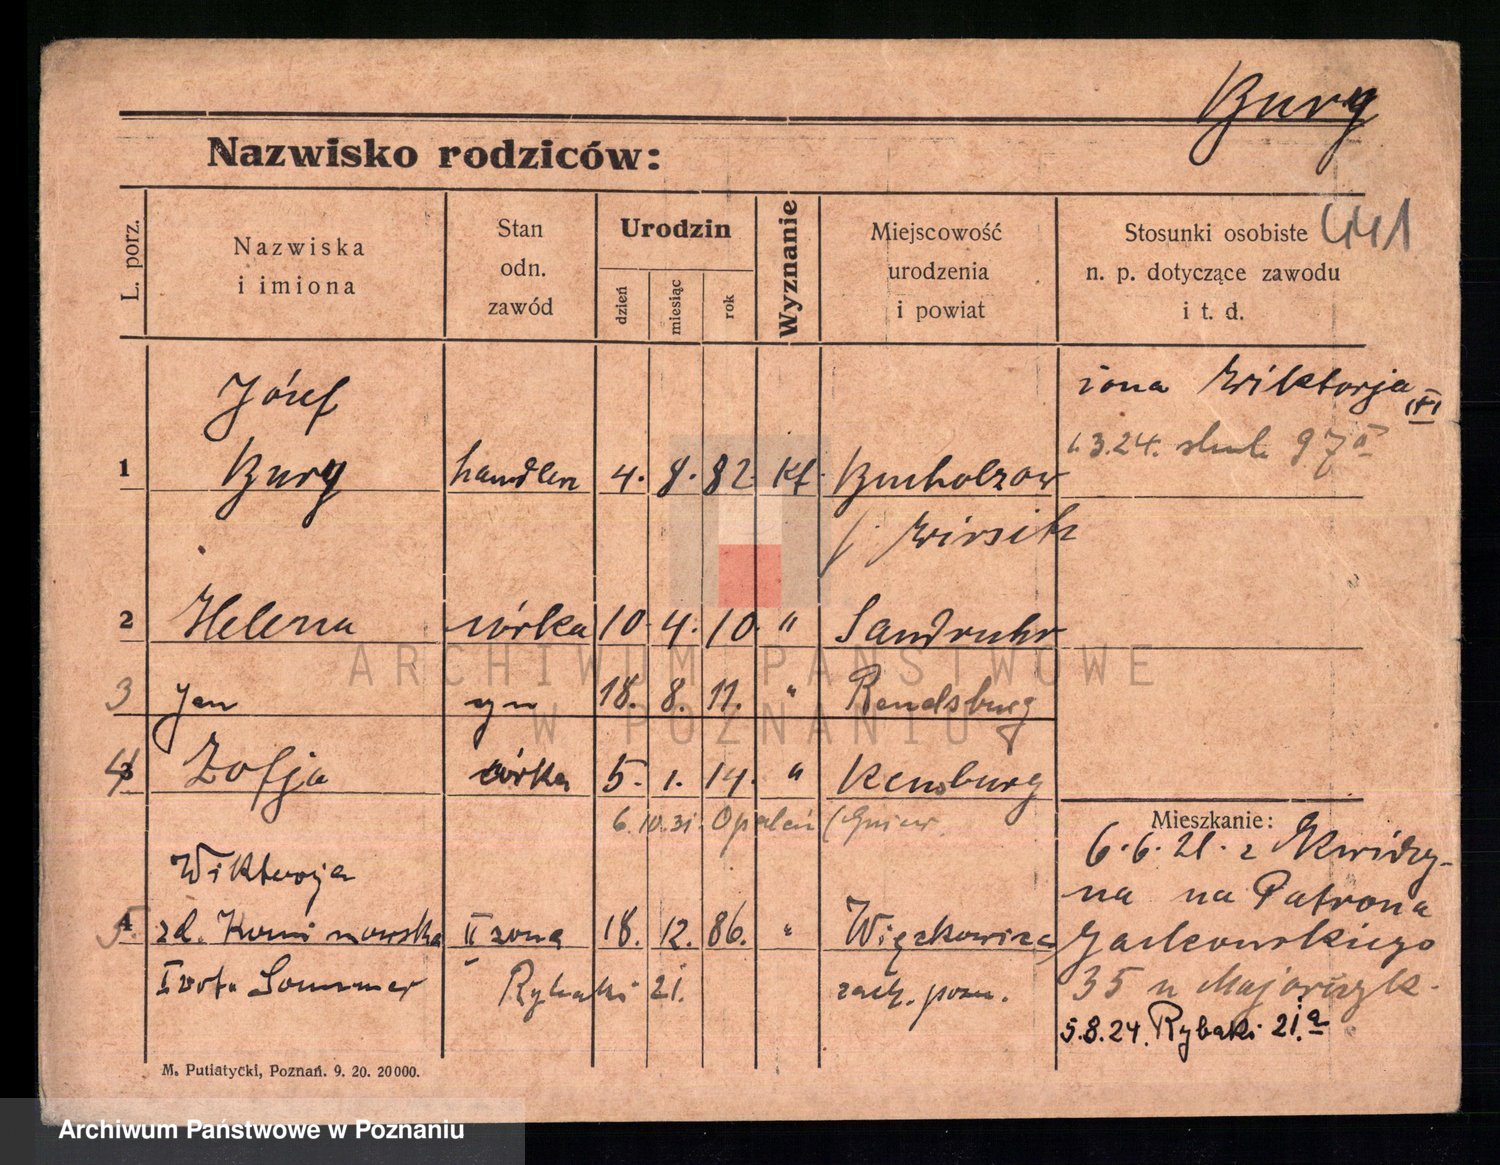 Burg
Nazwisko rodziców:
441
L. porz.
Nazwiska
i imiona
Stan
odn.
zawód
Urodzin
dzień
miesiąc
rok
Wyznanie
Miejscowość
urodzenia
i powiat
Stosunki osobiste
n. p. dotyczące zawodu
i t. d.
Józef
żona Wiktorja
1 Burg handlerz 4. 8. 82. Kt. Bucholzow
1.3.24. 97
/ Wirsitz
2 Helena córka 10. 4. 10. " Sandruhr
3 Jan syn 18. 8. 11. " Rendsburg
4 3 Zofja córka 5. 1. 14. " Rensburg
6.10.31. Opaleń (Gniew.
Mieszkanie:
6.6.21. z Kwidzy-
na na Patrona
Jackowskiego
35 u
5.8.24. Rybaki 21.a
Wiktorja
5. 4 zd. Kominowska II żona 18. 12. 86. "
I voto Sommer Rybaki 21. zach. pozn.
M. Putiatycki, Poznań. 9. 20. 20000.
ARCHIWUM PAŃSTWOWE
W POZNANIU
Archiwum Państwowe w Poznaniu